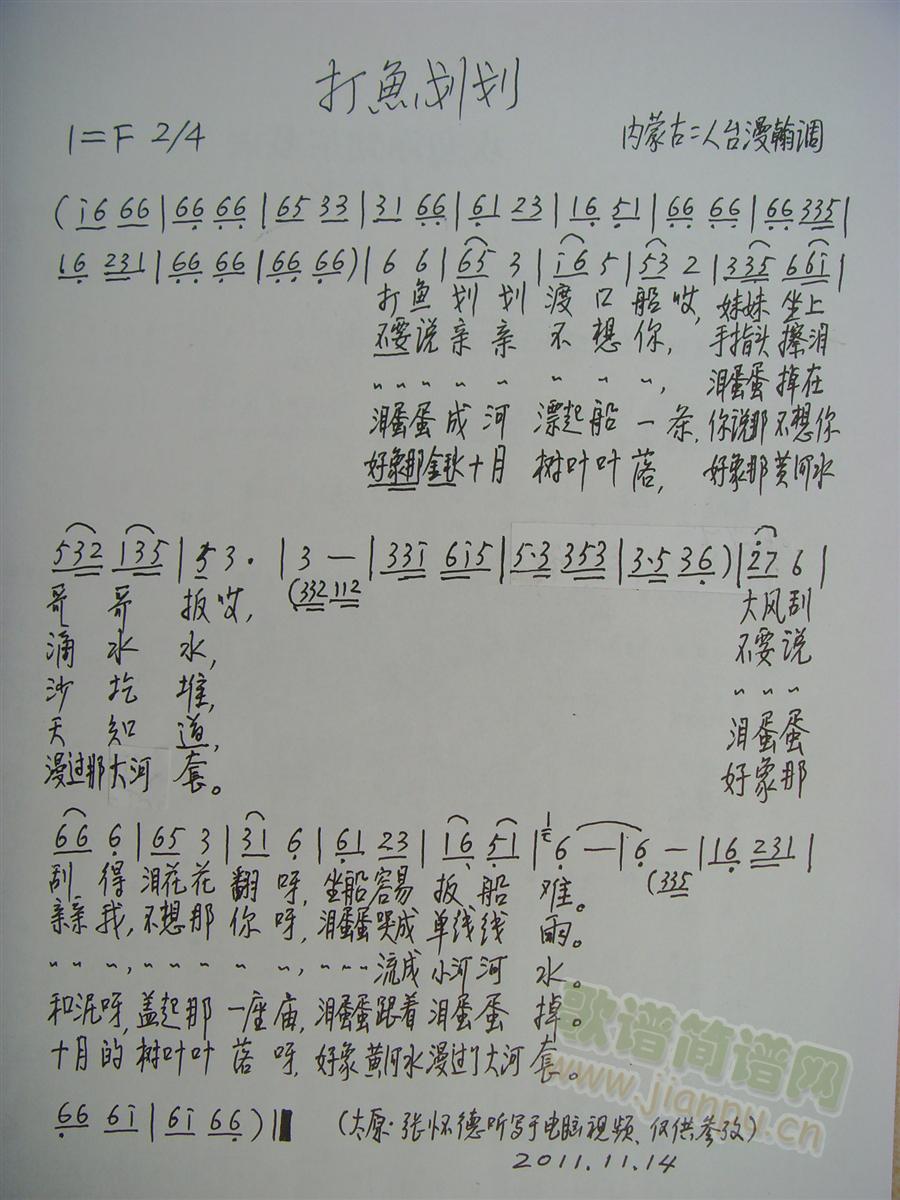 打魚划划
1=F 2/4 内蒙古二人台漫翰调
(i6 66|66 66|65 33|31 66|61 23|16 51|66 66|66 335|
16 231|66 66|66 66)|6 6|65 3|i6 5|53 2|335 66i|
打鱼划划渡口船哎,妹妹坐上
不要说亲亲不想你,手指头擦泪
〃〃〃〃〃〃〃〃,泪蛋蛋掉在
泪蛋蛋成河漂起船一条,你说那不想你
好象那金秋十月树叶叶落,好象那黄河水
532 135|53.|3 —|33i 6i5|5·3 353|3·5 36)|27 6|
(332 112
哥哥扳哎,大风刮
涌水水,不要说
沙圪堆,〃〃〃
天知道,泪蛋蛋
漫过那大河套。好象那
66 6|65 3|31 6|61 23|16 51|6 —|6 —|16 231|
(335
刮得泪花花翻呀,坐船容易扳船难。
亲亲我,不想那你呀,泪蛋蛋哭成单线线雨。
〃〃〃,〃〃〃〃〃,〃〃〃流成小河河水。
和泥呀,盖起那一座庙,泪蛋蛋跟着泪蛋蛋掉。
十月的树叶叶落呀,好象黄河水漫过了大河套。
66 6i|6i 66)|
(太原·张怀德听写于电脑视频、仅供参考)
2011.11.14
歌谱简谱网
www.jianpu.cn